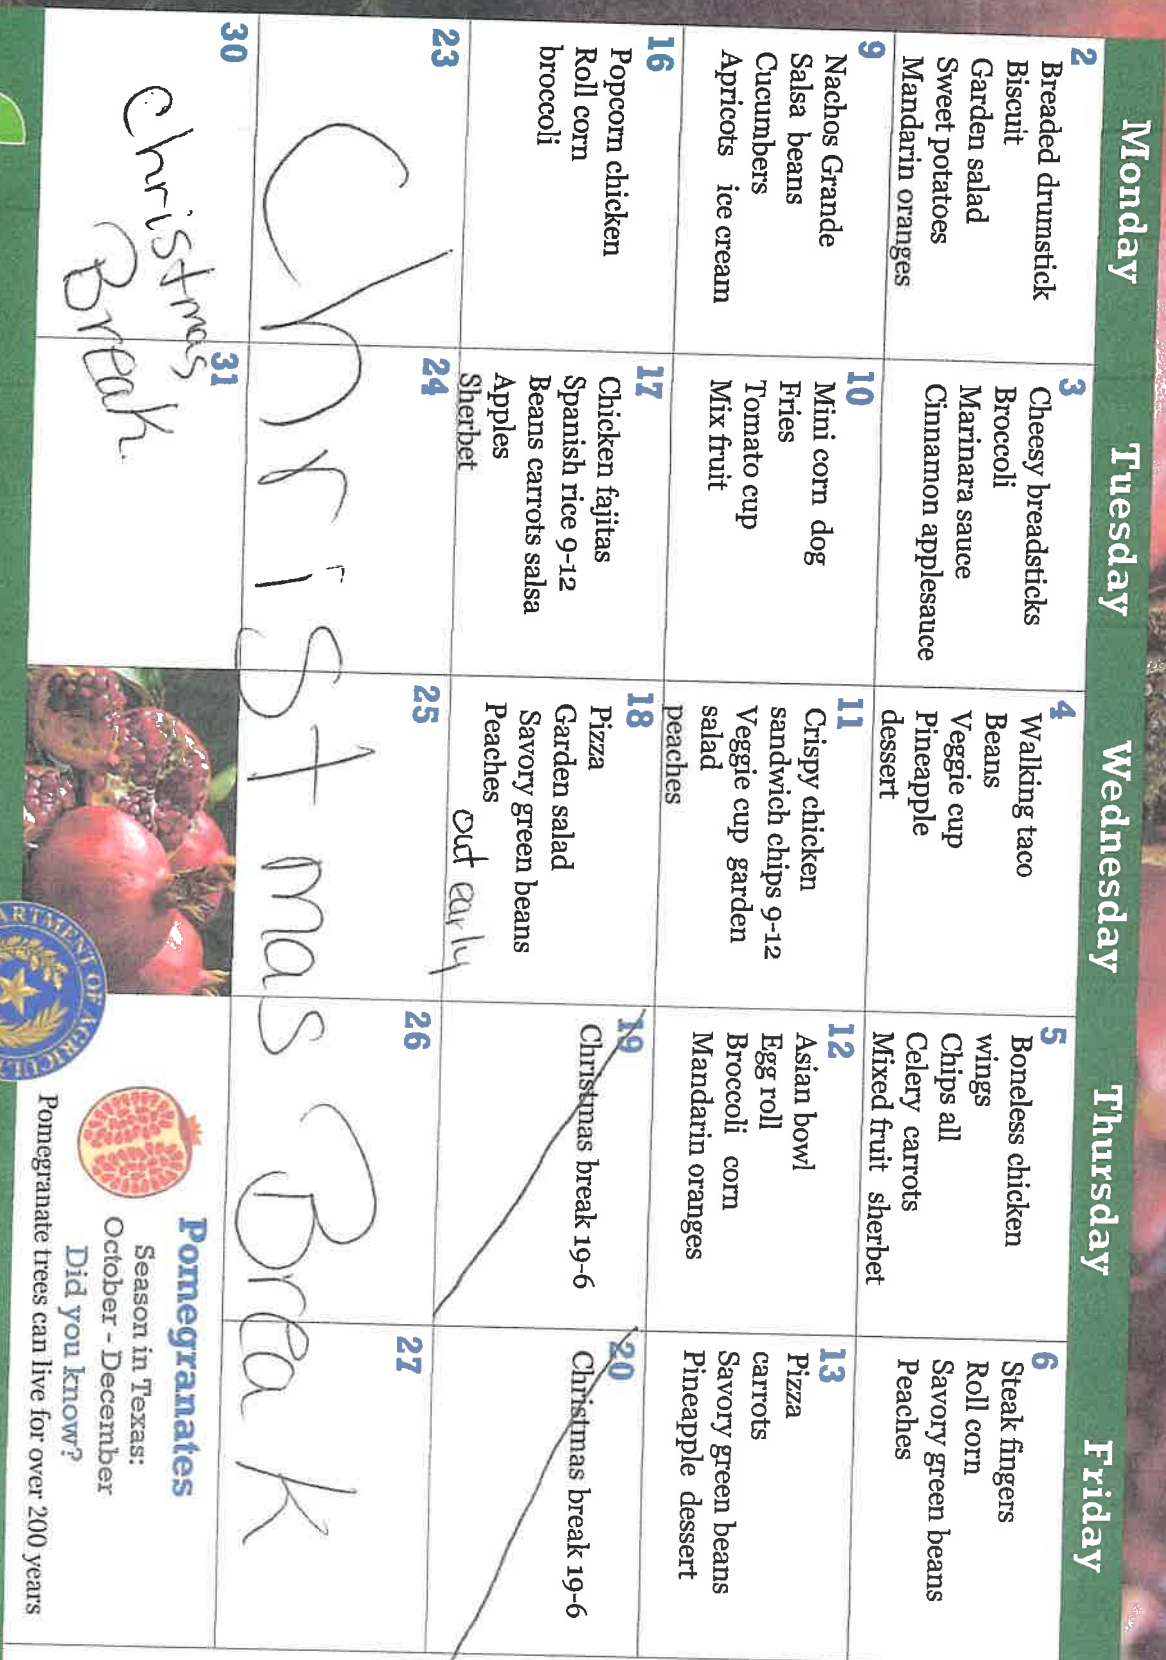 Monday
Tuesday
Wednesday
Thursday
Friday
2
Breaded drumstick
Biscuit
Garden salad
Sweet potatoes
Mandarin oranges
3
Cheesy breadsticks
Broccoli
Marinara sauce
Cinnamon applesauce
4
Walking taco
Beans
Veggie cup
Pineapple
dessert
5
Boneless chicken
wings
Chips all
Celery carrots
Mixed fruit sherbet
6
Steak fingers
Roll corn
Savory green beans
Peaches
9
Nachos Grande
Salsa beans
Cucumbers
Apricots ice cream
10
Mini corn dog
Fries
Tomato cup
Mix fruit
11
Crispy chicken
sandwich chips 9-12
Veggie cup garden
salad
peaches
12
Asian bowl
Egg roll
Broccoli corn
Mandarin oranges
13
Pizza
carrots
Savory green beans
Pineapple dessert
16
Popcorn chicken
Roll corn
broccoli
17
Chicken fajitas
Spanish rice 9-12
Beans carrots salsa
Apples
Sherbet
18
Pizza
Garden salad
Savory green beans
Peaches
out early
19
Christmas break 19-6
20
Christmas break 19-6
23
24
25
26
27
Christmas Break
30
31
Christmas
Break
Pomegranates
Season in Texas:
October - December
Did you know?
Pomegranate trees can live for over 200 years